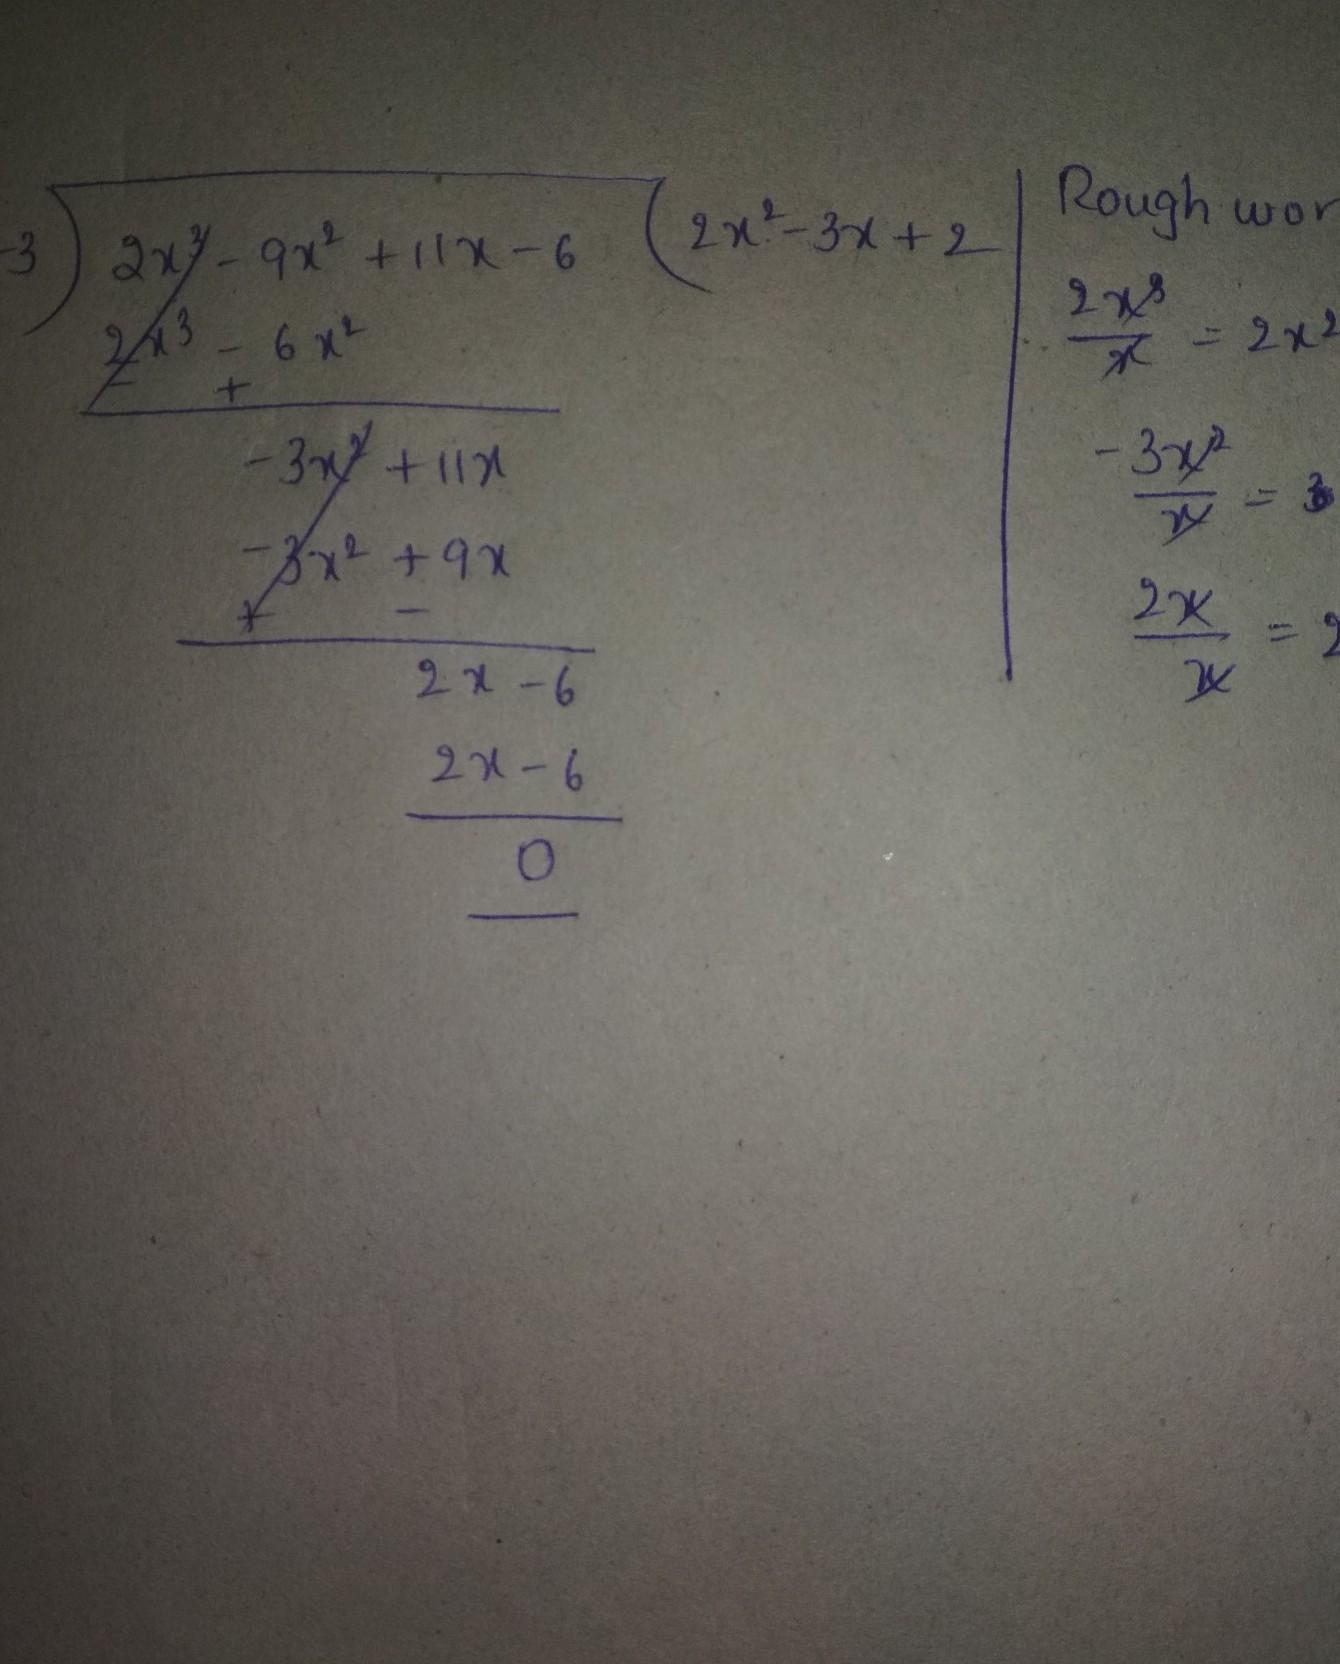 -3) 2x³ - 9x² + 11x - 6 (2x² - 3x + 2
2x³ - 6x²
- +
-3x² + 11x
-3x² + 9x
+ -
2x - 6
2x - 6
0
Rough wor
2x³/x = 2x²
-3x²/x = 3
2x/x = 2